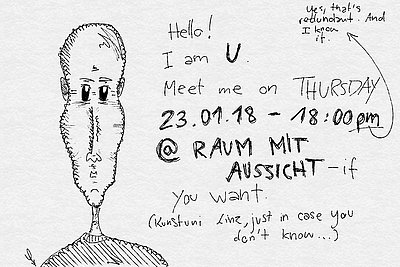 Hello!
I am U.
Meet me on THURSDAY
23.01.18 - 18:00pm
@ RAUM MIT
AUSSICHT - if
you want.
(Kunstuni Linz, just in case you
don't know...)
Yes, that's
redundant. And
I know
it.